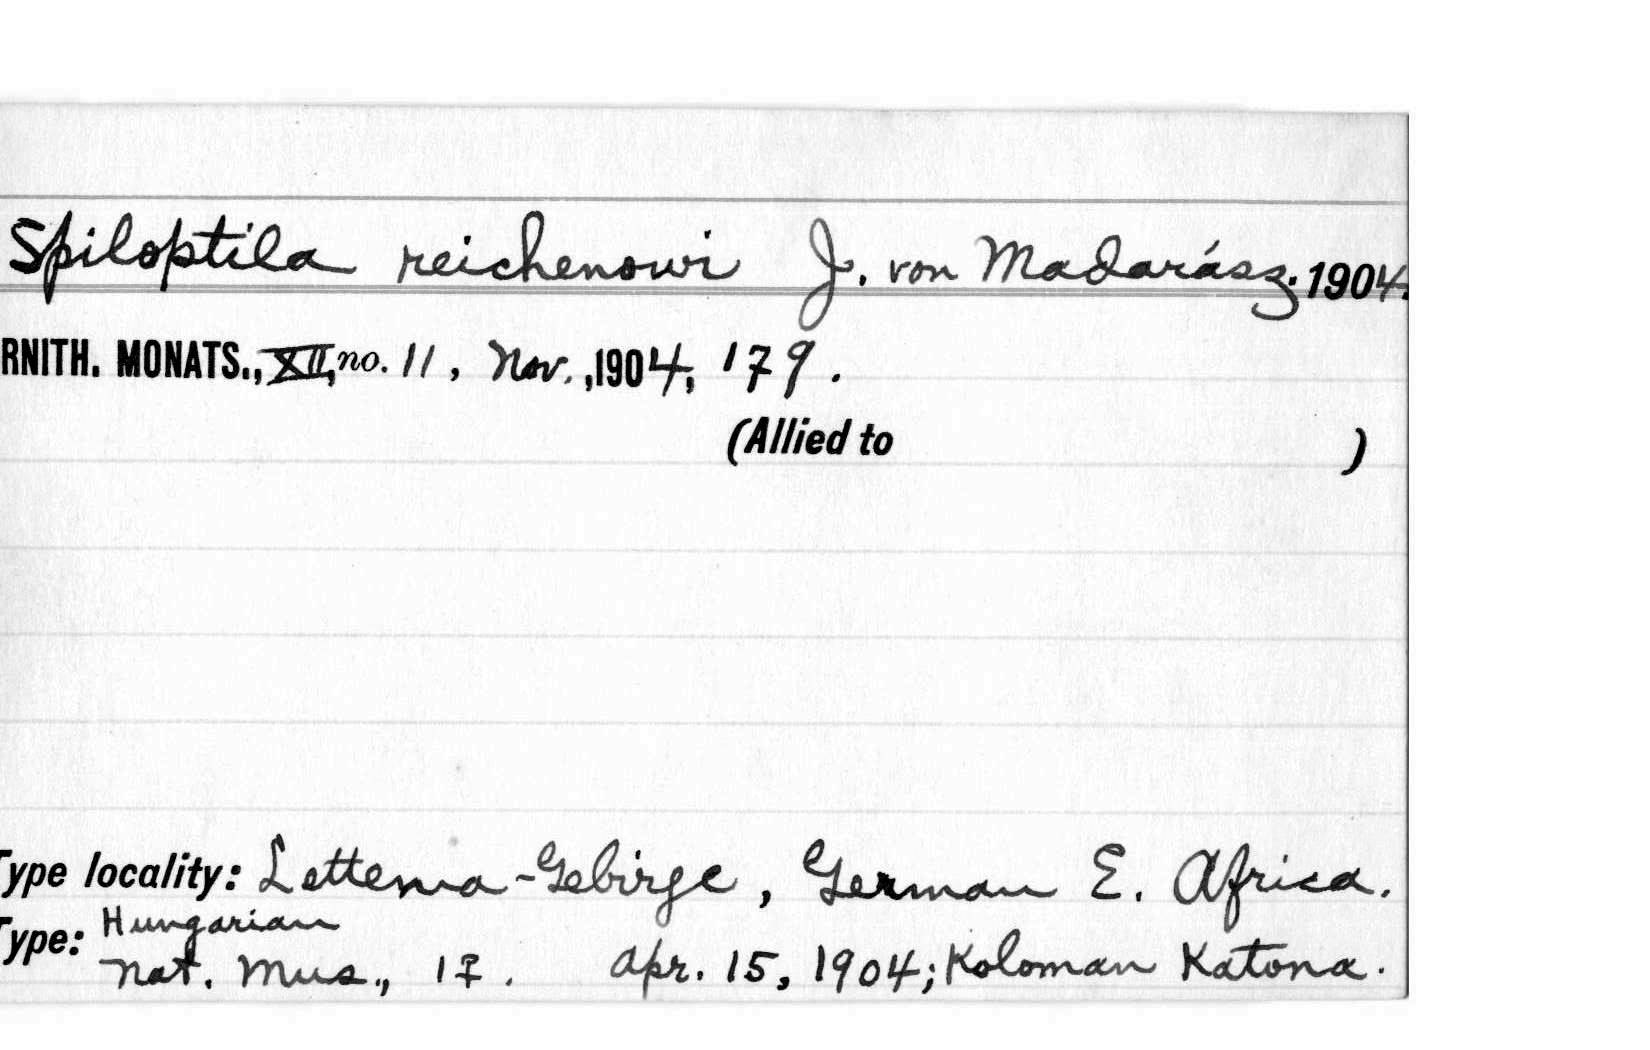 Spiloptila reichenowi J. von Madarász. 1904.
RNITH. MONATS., XII, no. 11, Nov., 1904, 179.
(Allied to )
Type locality: Lettema-Gebirge, German E. Africa.
Type: Hungarian
Nat. Mus., 17. Apr. 15, 1904; Koloman Katona.